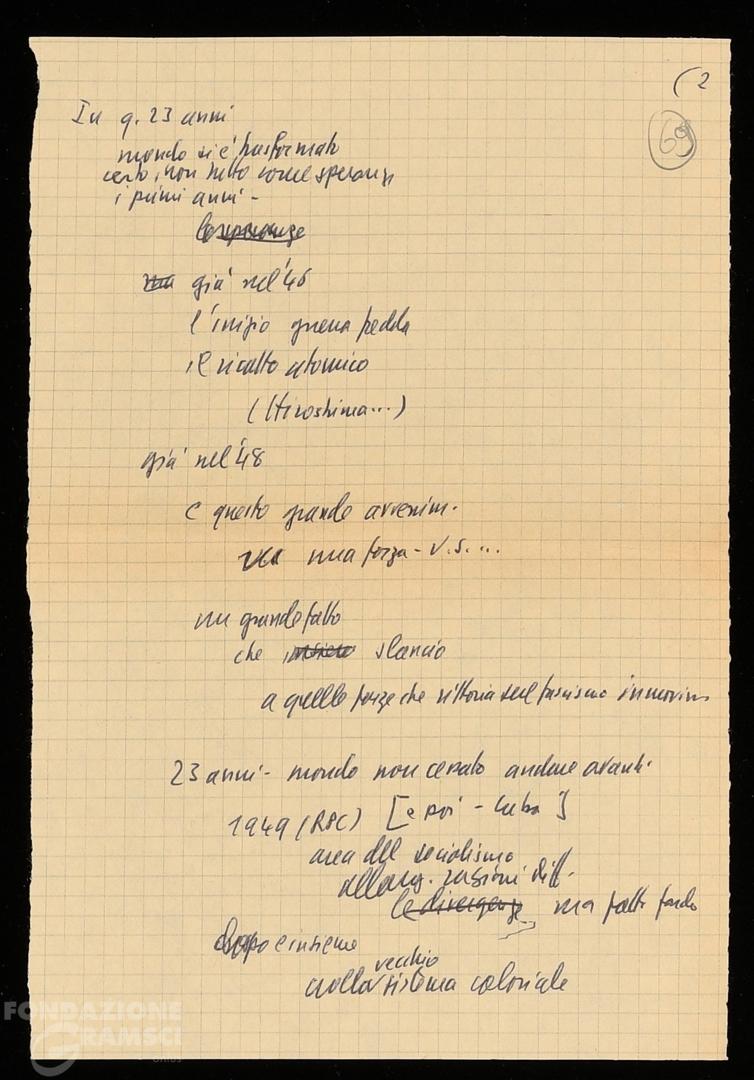 (2
69
In q. 23 anni
mondo si è trasformato
certo, non tutto come speranze
i primi anni -
le speranze
ma già nel '46
l'inizio guerra fredda
il ricatto atomico
(Hiroshima...)
già nel '48
e questo grande avvenim.
una forza - v.s....
un grande fatto
che slancio
a quelle forze che vittoria sul fascismo in movim
23 anni - mondo non cessato andare avanti
1949 (RPC) [e poi - Cuba]
area del socialismo
allarg. ragioni diff.
le divergenze ma fatto fondo
dopo e insieme
vecchio
crollo sistema coloniale
FONDAZIONE
GRAMSCI
ONLUS